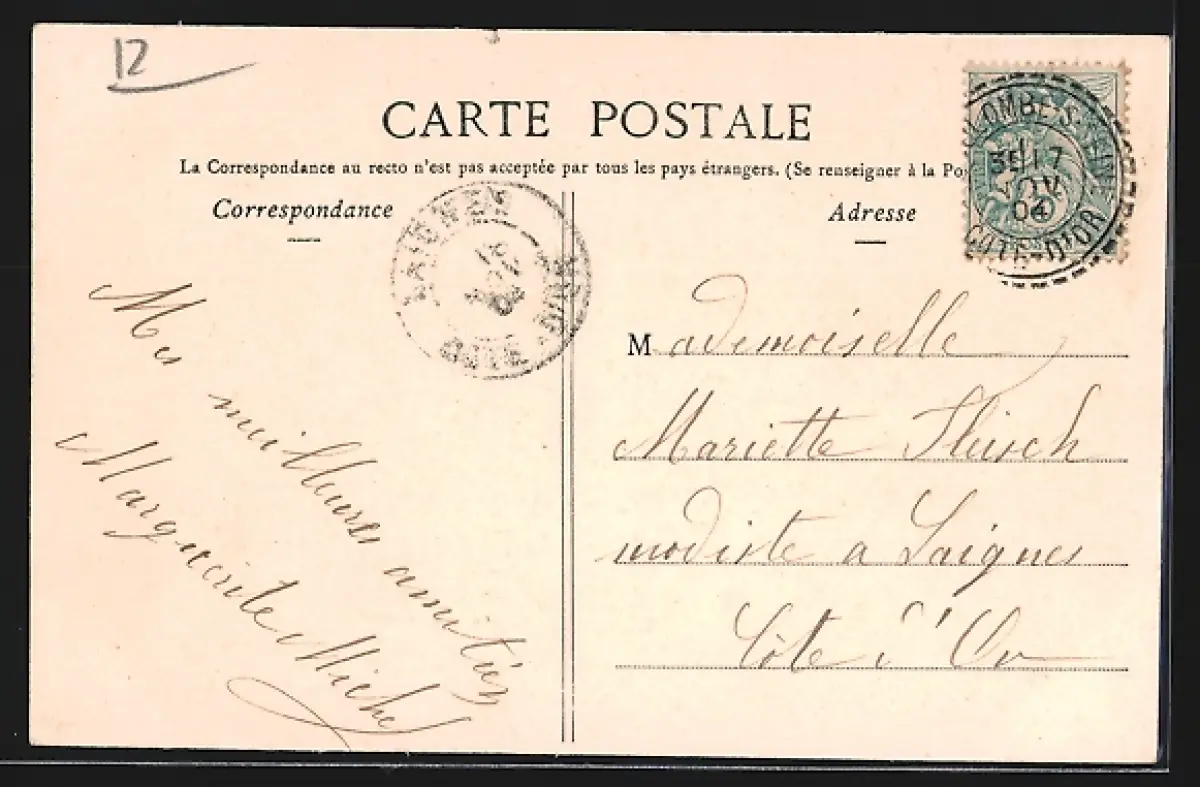 12
CARTE POSTALE
La Correspondance au recto n'est pas acceptée par tous les pays étrangers. (Se renseigner à la Po
Correspondance
Mes meilleures amitiés
Marguerite Michel
LAIGNES
CÔTE-D'OR
Adresse
COLOMBE-S-SEINE
17
NOV
04
CÔTE-D'OR
Mademoiselle
Mariette Fleisch
modiste a Laignes
Côte d'Or